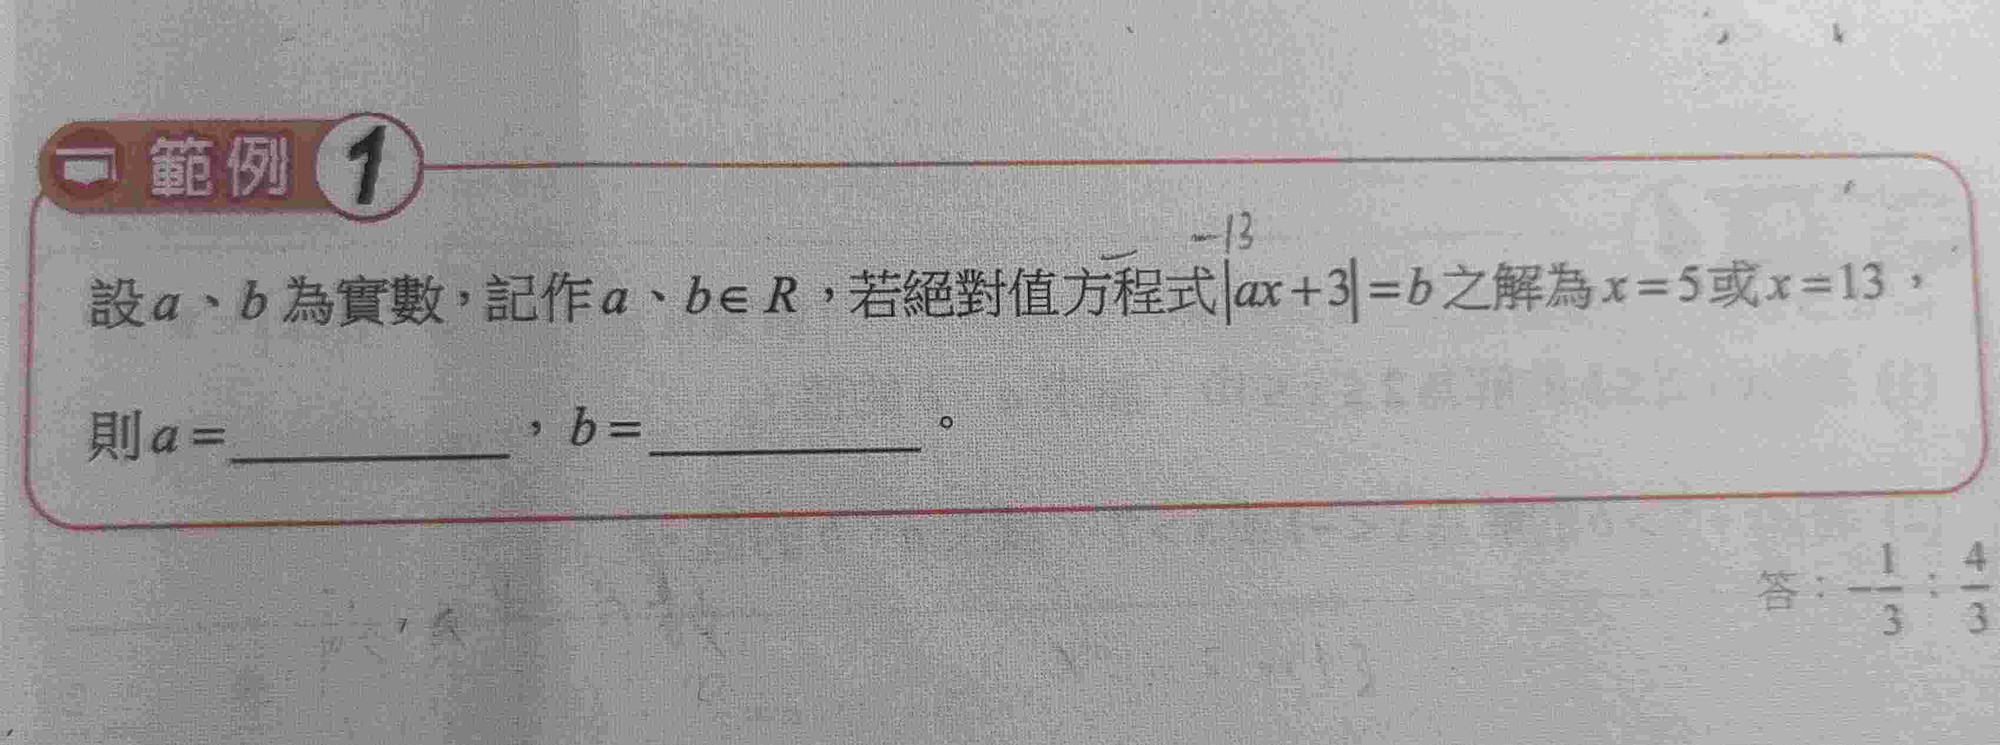 範例 1
-13
設a、b為實數,記作a、b∈R,若絕對值方程式|ax+3|=b之解為x=5或x=13,
則a=__________,b=__________。
答:-1/3:4/3